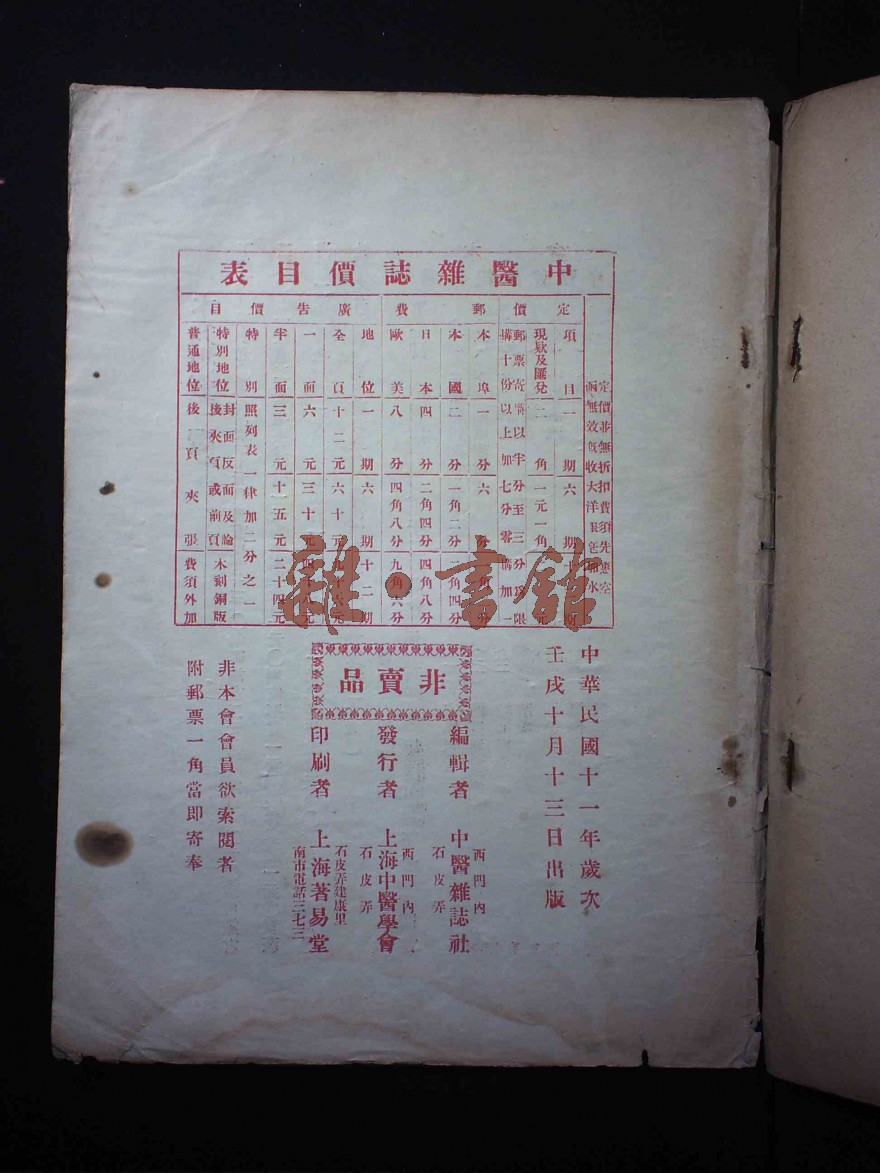 中醫雜誌價目表
定價
郵費
廣告價目
定價並無折扣費須先惠空
函無效旣收大洋
水
項目 一期 六期
現欵及匯兌 二角 一元一角
郵票寄購以半分至三分爲限
購十份以上加七分零購加一
本埠 一分 六分
本國 二分 一角二分 二角四分
日本 四分 二角四分 四角八分
歐美 八分 四角八分 九角六分
地位 一期 六期 十二期
全頁 十二元 六十元
一面 六元 三十元 四十八元
半面 三元 十五元 二十四元
特別 照列表一律加二分之一
特別地位 封面反面及
後夾頁或前頁 木刻銅版
普通地位 後頁夾張 費須外加
雜·書館
中華民國十一年歲次
壬戌十月十三日出版
非賣品
編輯者 中醫雜誌社 西門內石皮弄
發行者 上海中醫學會 西門內石皮弄
印刷者 上海著易堂 石皮弄建康里 南市電話三七三
非本會會員欲索閱者
附郵票一角當卽寄奉